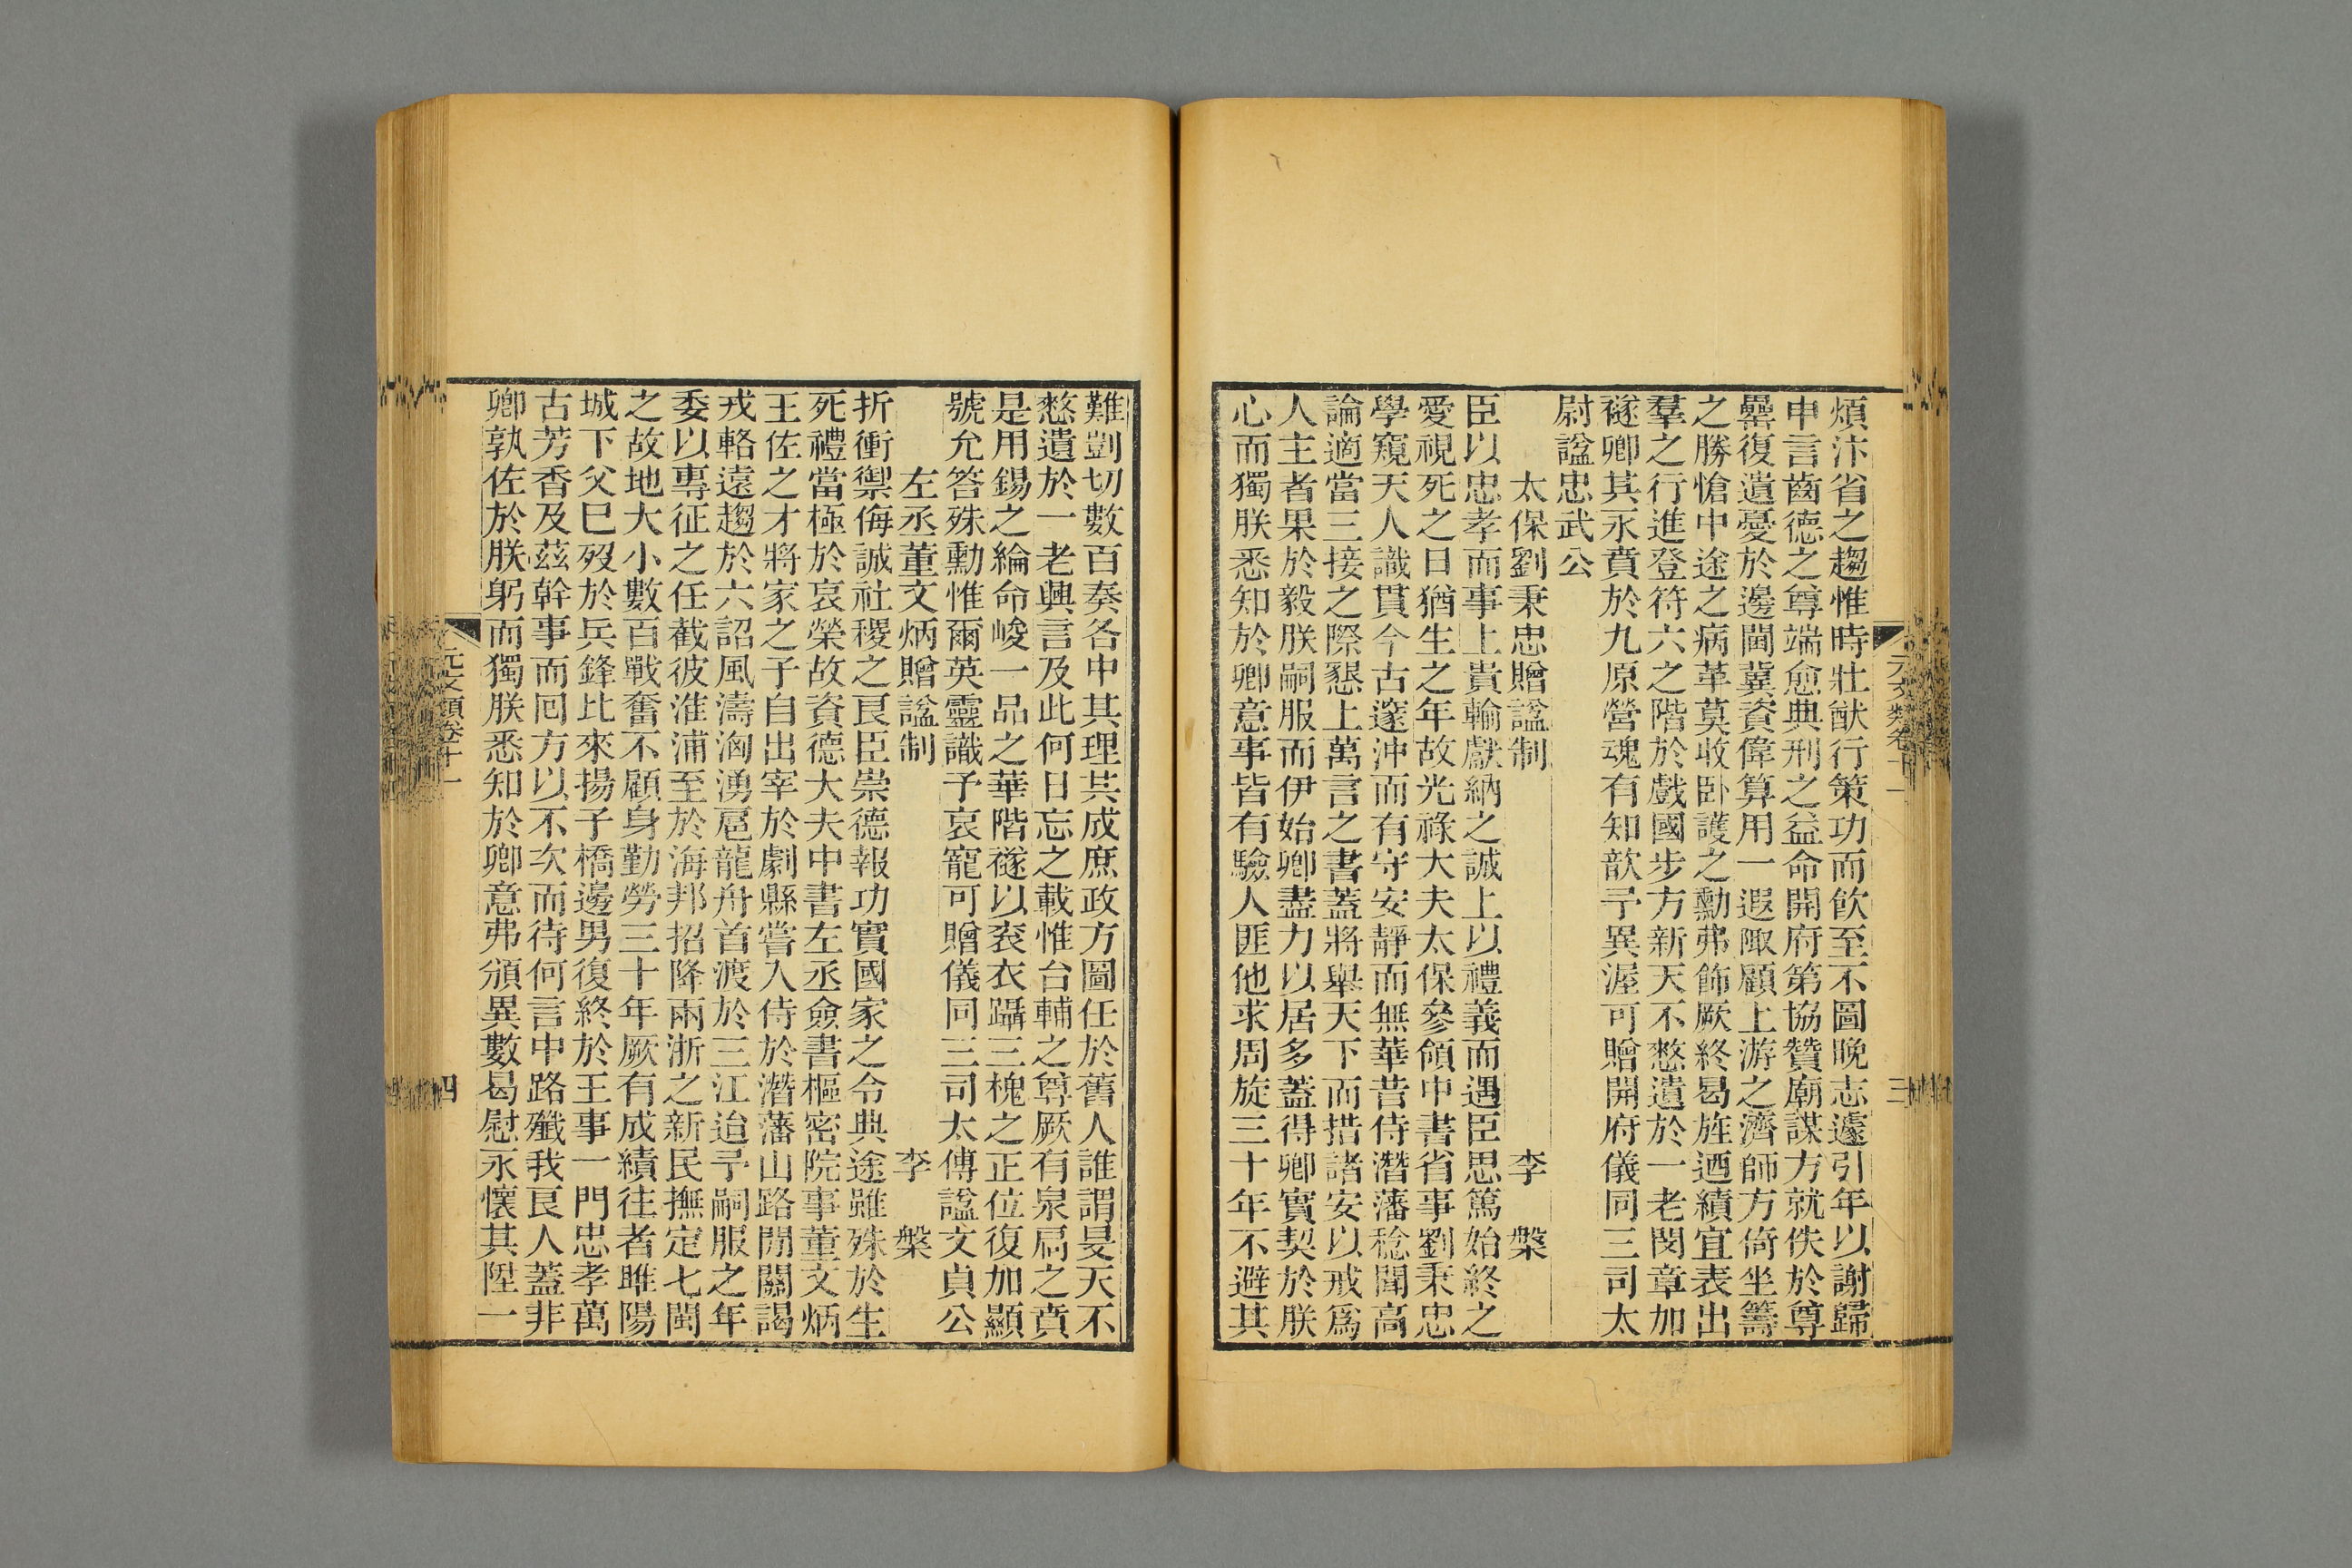 元文類卷十一
三
煩汴省之趨惟時壯猷行策功而飲至不圖晚志遽引年以謝歸
申言齒德之尊端愈典刑之益命開府第協贊廟謀方就佚於尊
罍復遺憂於邊閫冀資偉算用一遐陬顧上游之濟師方倚坐籌
之勝愴中途之病革莫收卧護之勳弗飾厥終曷旌迺績宜表出
羣之行進登符六之階於戲國步方新天不憗遺於一老閔章加
襚卿其永賁於九原營魂有知歆予異渥可贈開府儀同三司太
尉諡忠武公
太保劉秉忠贈諡制 李槃
臣以忠孝而事上貴輸獻納之誠上以禮義而遇臣思篤始終之
愛視死之日猶生之年故光祿大夫太保參領中書省事劉秉忠
學窺天人識貫今古邃沖而有守安靜而無華昔侍潛藩稔聞高
論適當三接之際懇上萬言之書蓋將舉天下而措諸安以戒爲
人主者果於毅朕嗣服而伊始卿盡力以居多蓋得卿實契於朕
心而獨朕悉知於卿意事皆有驗人匪他求周旋三十年不避其
難剴切數百奏各中其理其成庶政方圖任於舊人誰謂旻天不
憗遺於一老興言及此何日忘之載惟台輔之尊厥有泉扃之賁
是用錫之綸命峻一品之華階襚以衮衣躡三槐之正位復加顯
號允答殊勳惟爾英靈識予哀寵可贈儀同三司太傅諡文貞公
左丞董文炳贈諡制 李槃
折衝禦侮誠社稷之良臣崇德報功實國家之令典途雖殊於生
死禮當極於哀榮故資德大夫中書左丞僉書樞密院事董文炳
王佐之才將家之子自出宰於劇縣嘗入侍於潛藩山路閒關謁
戎輅遠趨於六詔風濤洶湧扈龍舟首渡於三江迨予嗣服之年
委以專征之任截彼淮浦至於海邦招降兩浙之新民撫定七閩
之故地大小數百戰奮不顧身勤勞三十年厥有成績往者雎陽
城下父巳歿於兵鋒比來揚子橋邊男復終於王事一門忠孝萬
古芳香及茲幹事而囘方以不次而待何言中路殲我良人蓋非
卿孰佐於朕躬而獨朕悉知於卿意弗頒異數曷慰永懷其陞一
元文類卷十一
四